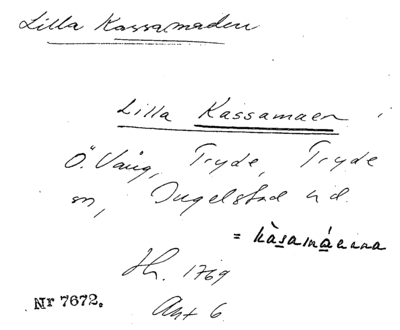 Lilla Kassamaden
Lilla Kassamaen
Ö. Vång, Tryde, Tryde
sn, Ingelstad hd.
= kàsamáenna
Sk. 1769
Akt 6
Nr 7672.